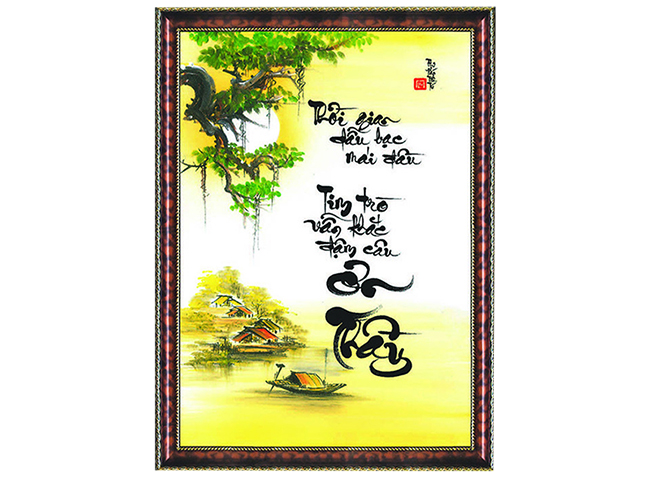 Thời gian
dẫu bạc
mái đầu
Tim trò
vẫn khắc
đậm câu
Ơn
Thầy